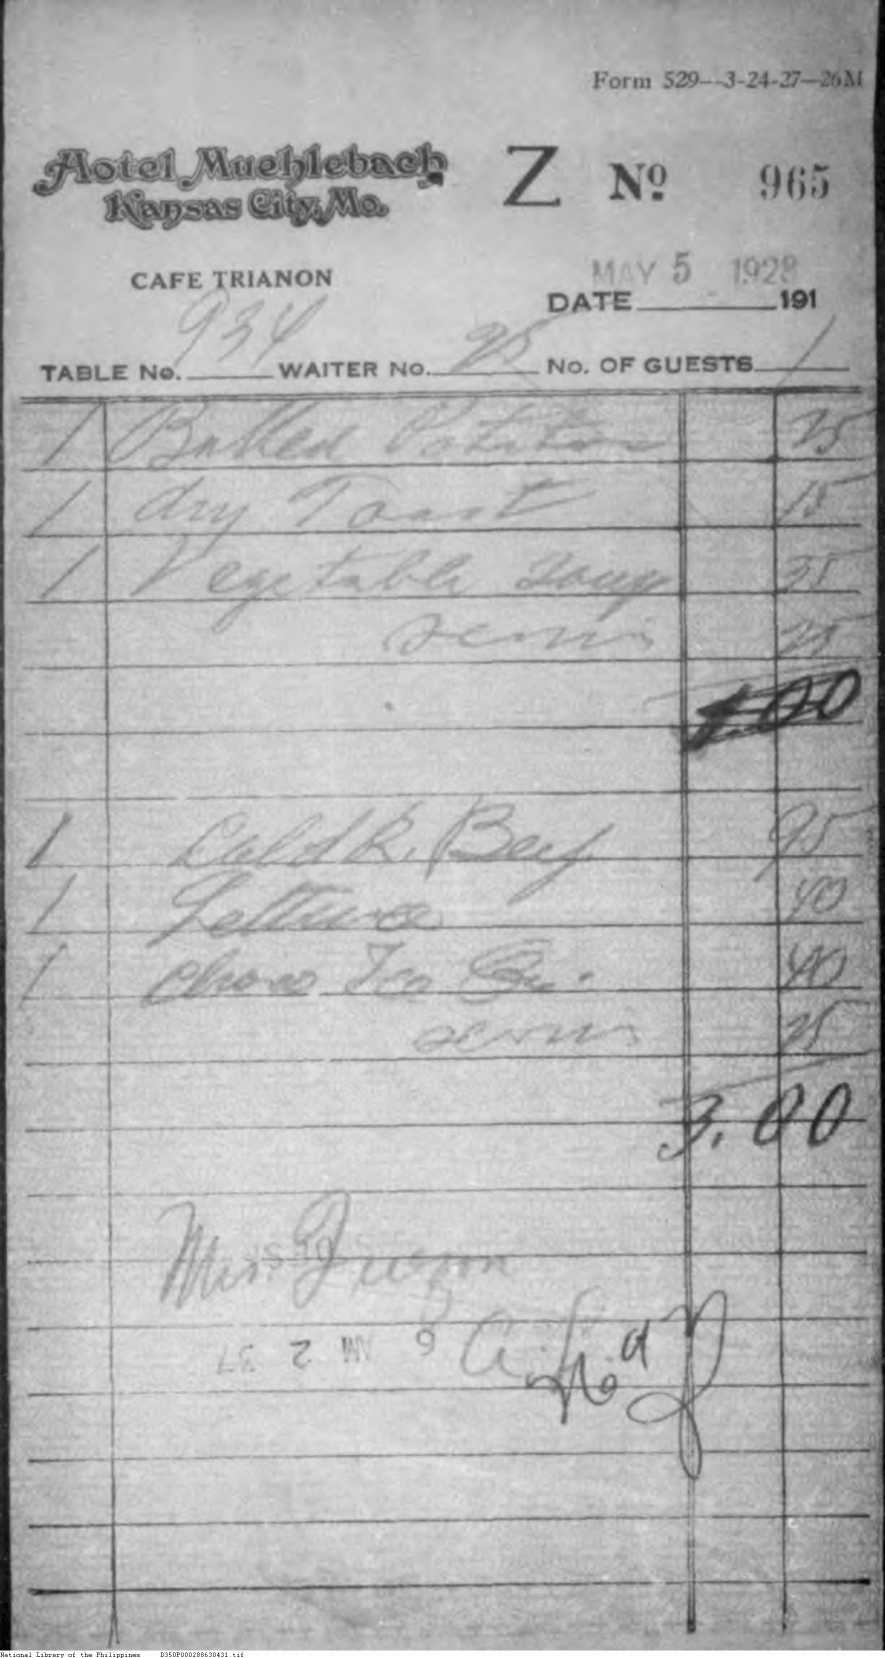 Form 529—3-24-27—26M
Hotel Muehlebach
Kansas City, Mo.
Z No 965
CAFE TRIANON
MAY 5 1928
DATE 191
TABLE No. 934 WAITER No. 25 No. OF GUESTS 1
1 Baked Potatoe 25
1 dry Toast 15
1 Vegetable Soup 35
25
1.00
1 Cold R. Beef 95
1 Lettuce 40
1 40
25
3.00
Mrs.
6 AM 2 37
National Library of the Philippines D350P000288630431.tif